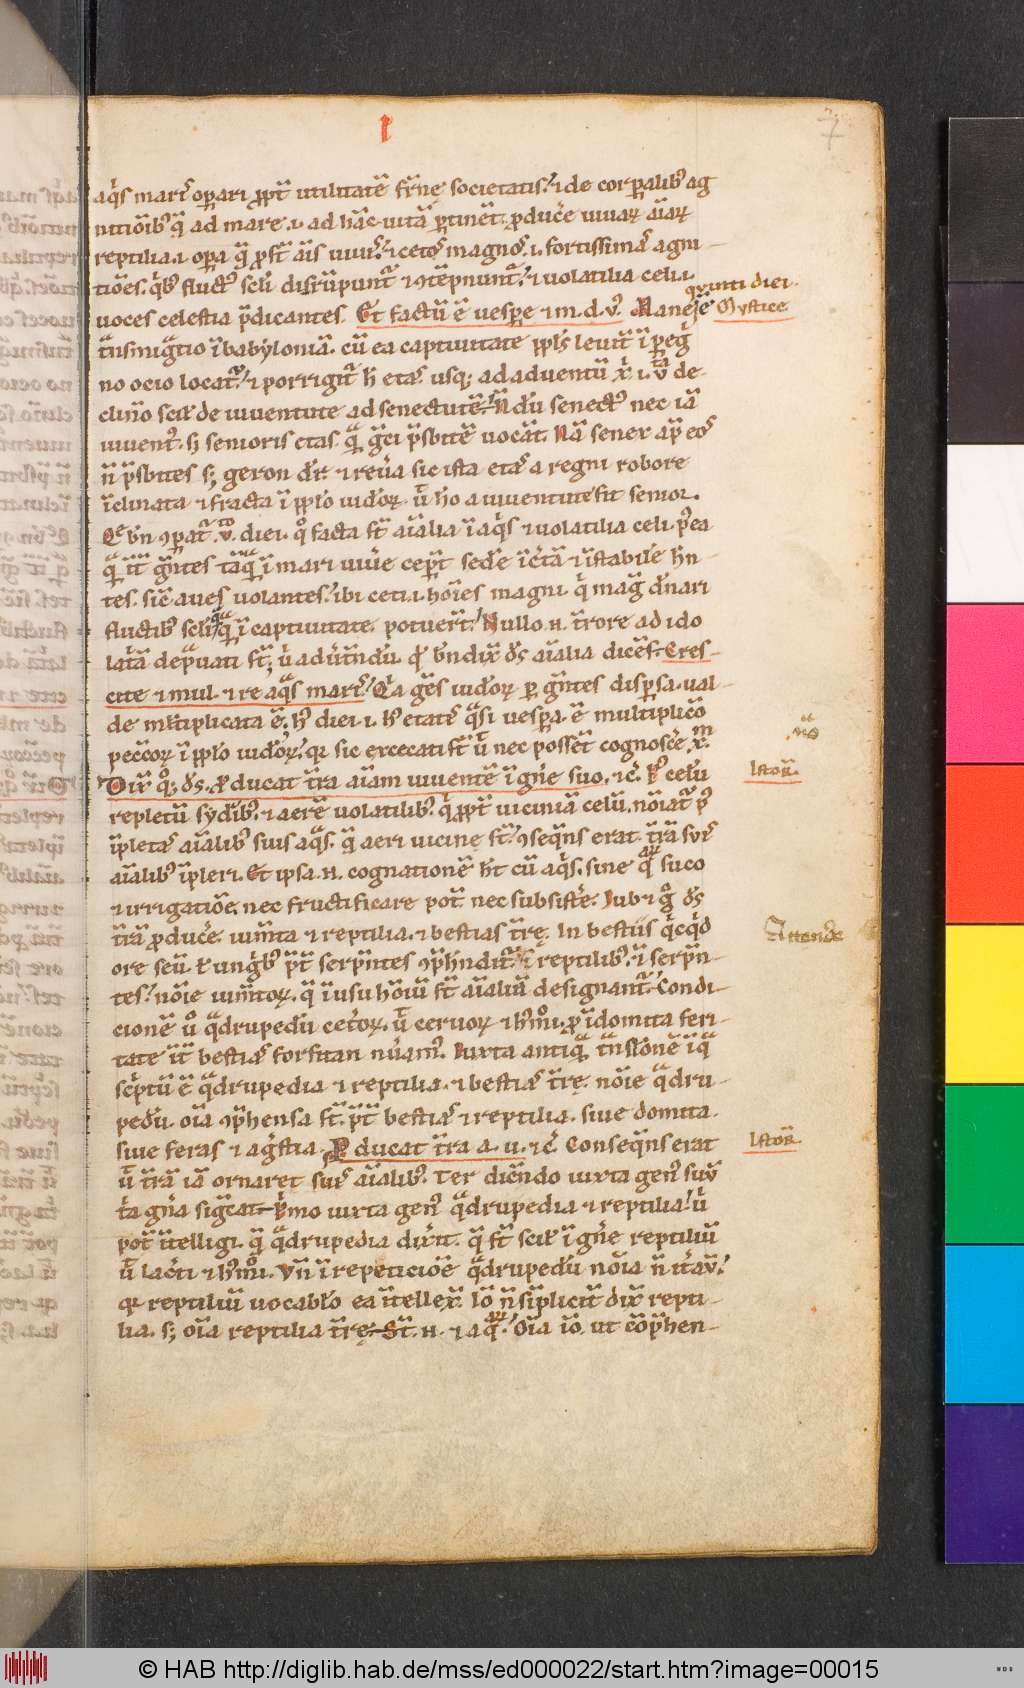 I
7
aq̃s mar̃ oꝑari ꝓpt̃ utilitatẽ fr̃nę societatis. ⁊ de corꝑalib᷒ ag
nitiõib᷒ q̃ ad mare .i. ad hãc uitã ꝑtinẽt. ꝓducẽ uiuaꝝ aĩaꝝ
reptilia .i. oꝑa q̃ pr̃ſt aĩs uiuĩ. ⁊ cetos magnos .i. fortissimas agni
tiões. qͥb᷒ fluct᷒ scl̃i disrũpunt̃ ⁊ ꝯtẽpnunt̃. ⁊ uolatilia celi .i.
uoces celestia p̃dicantes. Et factũ ẽ uesꝑe ⁊ m. d. v᷒. Mane
quinti diei.
Mystice.
tñsmigr̃tio ĩ babyloniã. cũ ea captiuitate ppl̃s leuit̃ ĩ ꝑegͥ
no ocio locat᷒. ⁊ porrigit̃ h̃ etas usq; ad aduentũ xp̃i .v. de
clino scil̃ de iuuentute ad senectutẽ. Ñdũ senect᷒ nec iã
iuuent᷒. s; senioris etas. q̃ gr̃ci p̃sbitẽ uocãt. Nã senex ap̃ eos
ñ p̃sbites s; geron dr̃. ⁊ reũa sic ista etas a regni robore
ĩclinata ⁊ fracta ĩ pplo iudoꝝ. ũ ho a iuuentute fit senior.
bñ ꝯꝑat̃ .v. diei. q̊ facta st̃ aĩalia ĩ aq̃s ⁊ uolatilia celi. p̃ea
q̃ ĩt gr̃ntes tãq̃ ĩ mari uiũe ceꝑt sedẽ ĩcertã ⁊ ĩstabilẽ hñ
tes. sic̃ aues uolantes. ibi ceti .i. hoĩes magni. q̃ mag̃ dñari
fluctib᷒ scl̃i q̃ ĩ captiuitate potuer̃t. Nullo .n. t̃rore ad ido
latã dep̃uati st̃. ũ aduẽtndũ. q̃ bñdix̃ ds̃ aĩalia dicẽs. Cres
cite ⁊ mul. ⁊ re aq̃s mar̃. Qa gẽs iudoꝝ ꝑ gr̃ntes disꝑsa. ual
de mltiplicata ẽ. h᷒ diei .i. h᷒ etatẽ q̃si uesꝑa ẽ multiplico
peccoꝝ ĩ pplo iudoꝝ. q̃ sic excecati st̃ ũ nec possẽt cognoscẽ xp̃m.
Dix̃ q̊; ds̃. ꝓducat t̃ra aĩam uiuentẽ ĩ gñe suo. ⁊c̃. P᷒ celũ
Istor̃.
repletũ sydib᷒. ⁊ aerẽ uolatilib᷒. q̃ ꝓpt̃ uiciniã celũ. noiat᷒ p᷒
ĩpletas aĩalib᷒ suis aq̃s. q̃ aeri uicinę st̃. ꝯseq̃ns erat. t̃ra sr̃s
aĩalib᷒ ĩpleri. Et ipsa .n. cognationẽ ht̃ cũ aq̃s. sine q̃ꝝ suco
⁊ irrigatiõe. nec fructificare pot̃. nec subsistẽ. Iub⁊ g̊ ds̃
t̃rã ꝓducẽ. iumt̃a ⁊ reptilia. ⁊ bestias t̃rę. In bestiis q̃cq̃d
Attende
ore seũ ł ungͥb᷒ p̃t serpntes ꝯp̃hndit̃. ⁊ reptilib᷒. ĩ serpñ
tes. noĩe iumt̃oꝝ. q̃ ĩ usu hoĩũ st̃ aĩaliũ designant̃. Condi
cionẽ ũ q̃drupedũ cetoꝝ. ũ ceruoꝝ ⁊ hmoi. ꝓ ĩdomita feri
tate ĩt bestias forsitan nũam᷒. Iuxta antiq̃ tñslonẽ ĩ q̃
sc̃ptũ ẽ q̃drupedia ⁊ reptilia. ⁊ bestias t̃rę. noĩe q̃dru
pedũ. oĩa ꝯp̃hensa st̃. p̃t bestias ⁊ reptilia. siue domita.
siue feras ⁊ agr̃stia. Producat t̃ra a. u. ⁊ c̃. Conseq̃ns erat
Istor̃.
ũ t̃rã iã ornaret sr̃s aĩalib᷒. Ter dicẽdo iuxta gen᷒ suũ
t̃a gña sigcat. Pͥmo iuxta gen᷒ q̃drupedia ⁊ reptilia. ũ
pot̃ ĩtelligi. q̃ q̃drupedia dix̃it. q̃ st̃ scil̃ ĩ gñe reptiliũ
ũ lac̃ti ⁊ hmoi. Vñ ĩ repeticiõe q̃drupedũ noĩa ñ itãũ.
q̃ reptiliũ uocablo ea ĩtellex̃. Io ñ sĩplicit̃ dix̃ repti
lia. s; oĩa reptilia t̃rę. St̃ .n. ⁊ aq̃ꝝ. Oĩa io. ut cõp̃hen
© HAB http://diglib.hab.de/mss/ed000022/start.htm?image=00015